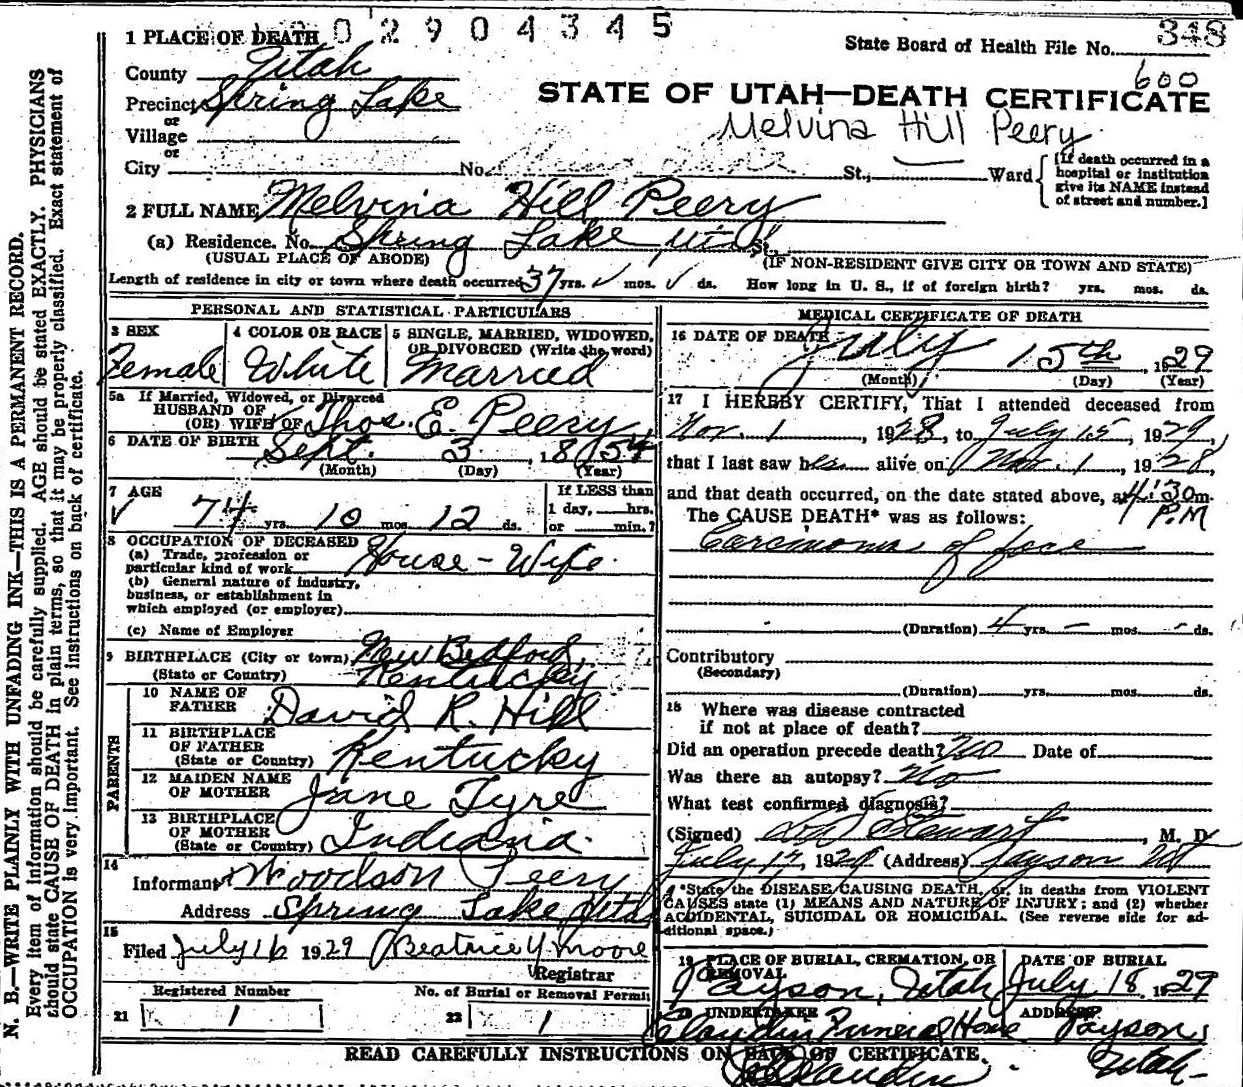 0 2 9 0 4 3 4 5
1 PLACE OF DEATH
State Board of Health File No. 348
600
County Utah
Precinct Spring Lake
or
Village
or
City No. St., Ward
[If death occurred in a hospital or institution give its NAME instead of street and number.]
STATE OF UTAH—DEATH CERTIFICATE
Melvina Hill Peery
2 FULL NAME Melvina Hill Peery
(a) Residence. No. Spring Lake, Utah St.,
(USUAL PLACE OF ABODE) (IF NON-RESIDENT GIVE CITY OR TOWN AND STATE)
Length of residence in city or town where death occurred 37 yrs. mos. ds. How long in U. S., if of foreign birth? yrs. mos. ds.
PERSONAL AND STATISTICAL PARTICULARS
3 SEX
Female
4 COLOR OR RACE
White
5 SINGLE, MARRIED, WIDOWED, OR DIVORCED (Write the word)
Married
5a If Married, Widowed, or Divorced
HUSBAND OF
(OR) WIFE OF Thos. E. Peery
6 DATE OF BIRTH Sept. 3, 1854
(Month) (Day) (Year)
7 AGE
74 yrs. 10 mos. 12 ds.
If LESS than
1 day, hrs.
or min.?
8 OCCUPATION OF DECEASED
(a) Trade, profession or
particular kind of work House-Wife.
(b) General nature of industry,
business, or establishment in
which employed (or employer)
(c) Name of Employer
9 BIRTHPLACE (City or town) New Bedford,
(State or Country) Kentucky
PARENTS
10 NAME OF FATHER David R. Hill
11 BIRTHPLACE OF FATHER
(State or Country) Kentucky
12 MAIDEN NAME OF MOTHER Jane Tyre
13 BIRTHPLACE OF MOTHER
(State or Country) Indiana.
14
Informant Woodson Peery
Address Spring Lake Utah
15
Filed July 16 1929 Beatrice Y Moore
Registrar
Registered Number
21 1
No. of Burial or Removal Permit
22 1
MEDICAL CERTIFICATE OF DEATH
16 DATE OF DEATH July 15th, 1929
(Month) (Day) (Year)
17 I HEREBY CERTIFY, That I attended deceased from
Nov. 1, 1928, to July 15, 1929,
that I last saw her alive on Nov. 1, 1928,
and that death occurred, on the date stated above, at 4:30 m.
P.M
The CAUSE DEATH* was as follows:
Carcinoma of face
(Duration) 4 yrs. - mos. - ds.
Contributory
(Secondary)
(Duration) yrs. mos. ds.
18 Where was disease contracted
if not at place of death?
Did an operation precede death? No Date of
Was there an autopsy? No
What test confirmed diagnosis?
(Signed) Stewart, M. D.
July 17, 1929 (Address) Payson Ut
*State the DISEASE CAUSING DEATH, or, in deaths from VIOLENT
CAUSES state (1) MEANS AND NATURE OF INJURY; and (2) whether
ACCIDENTAL, SUICIDAL OR HOMICIDAL. (See reverse side for ad-
ditional space.)
19 PLACE OF BURIAL, CREMATION, OR REMOVAL
Payson, Utah
DATE OF BURIAL
July 18, 1929
20 UNDERTAKER
Claudin Funeral Home
ADDRESS
Payson,
Utah-
Claudin
READ CAREFULLY INSTRUCTIONS ON BACK OF CERTIFICATE.
N. B.—WRITE PLAINLY WITH UNFADING INK—THIS IS A PERMANENT RECORD.
Every item of information should be carefully supplied. AGE should be stated EXACTLY. PHYSICIANS
should state CAUSE OF DEATH in plain terms, so that it may be properly classified. Exact statement of
OCCUPATION is very important. See instructions on back of certificate.